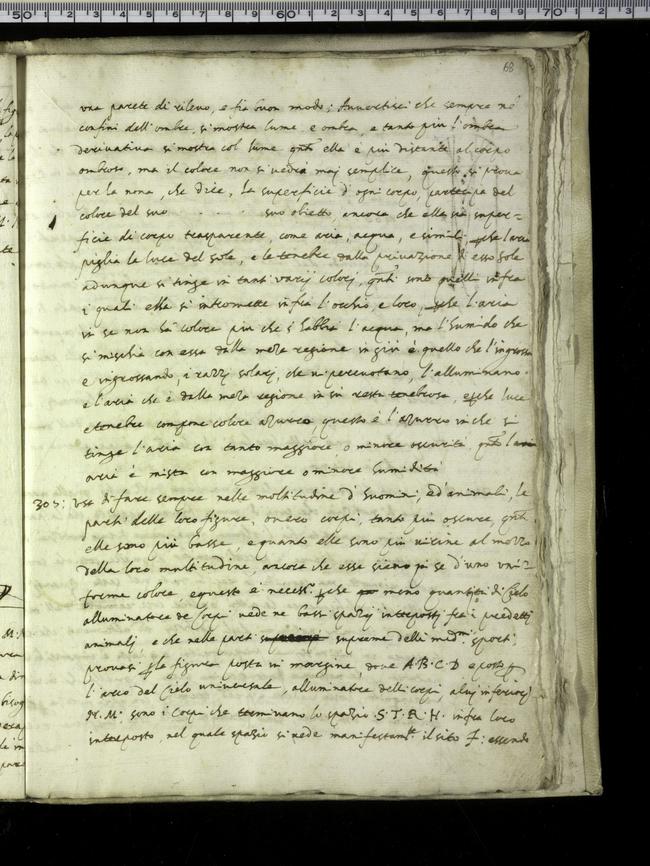 68
una parete di rilevo, e fia buon modo; Avvertisci che sempre ne
confini dell'ombre, si mostra lume e ombra, e tanto più l'ombra
derivativa si mostra col lume qnto ella è più distante al corpo
ombroso, ma il colore non si vedrà maj semplice, questo si prova
per la nona, che dice, la superficie d'ogni corpo, partecipa del
colore del suo . . . . suo obietto, ancora che ella sia super=
ficie di corpo trasparente, come aria, acqua, e simili, pche l'aria
piglia la luce del sole, e le tenebre dalla privazione d'esso sole
adunque si tinge in tanti varij colorj, qnti sono quelli infra
i quali essa si intromette infra l'occhio, e loro, pche l'aria
in se non ha colore più che s'habbia l'acqua, ma l'humido che
si mischia con essa dalla meza regione in giù è quello che l'ingrossa
e ingrossando, i razzj solarj, che vi percuotano, l'alluminano
e l'aria che è dalla meza regione in su resta tenebrosa, e pche luce
e tenebre compone colore azurro, questo è l'azurro in che si
tinge l'aria con tanto maggiore, o minore oscurità, qnto l'
aria è mista con maggiore o minore humidità
305: Usa di fare sempre nelle moltitudine d'huomini, ed'animali, le
parti delle loro figure, overo corpi, tanto più oscure, qnto
elle sono più basse, e quanto elle sono più vicine al mezzo
della loro multitudine, ancora che esse sieno in se d'uno uni=
forme colore, e questo è necess.o pche meno quantità di Cielo
alluminatore de corpi vede ne bassi spazij interposti fra i predetti
animalj, e che nelle parti supreme delli med.mi sporti
provasi p la figura posta in margine, dove A.B.C.D è posto p
l'arco del Cielo universale, alluminatore delli corpi, a luj inferiorj
N.M. sono i corpi che terminano lo spazio .S.T.R.H. infra loro
interposto, nel quale spazio si vede manifestamte. il sito F: essendo